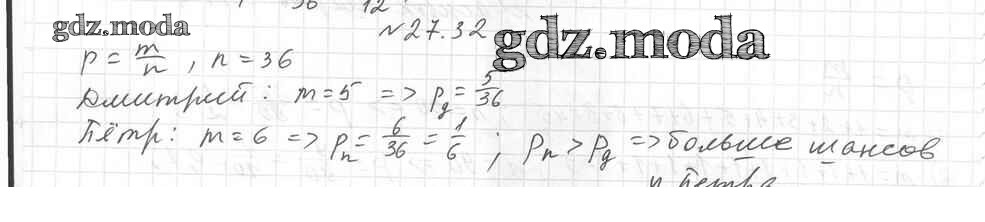 36 12
gdz.moda
№27.32
gdz.moda
p = m/n , n = 36
Дмитрий: m = 5 => pд = 5/36
Пётр: m = 6 => pп = 6/36 = 1/6 ; pп > pд => больше шансов
у Петра